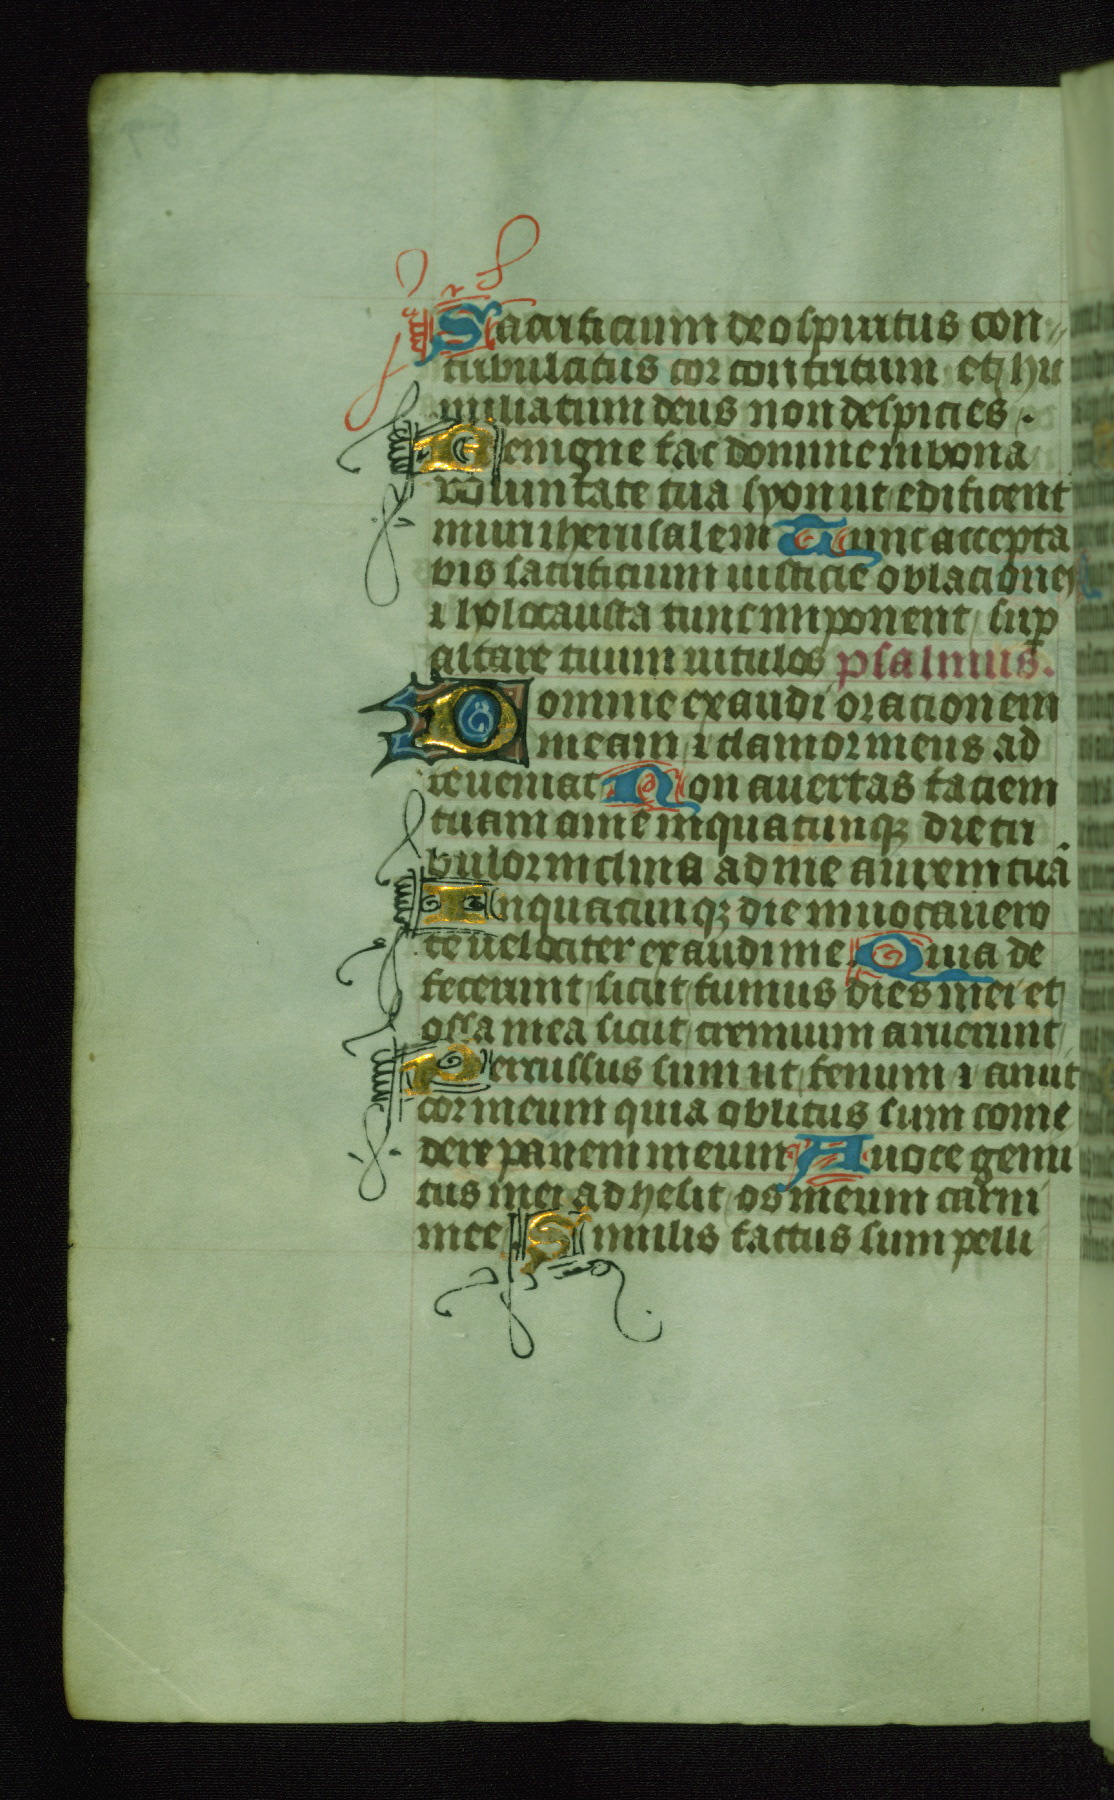 Sacrificium deo spiritus con
tribulatus cor contritum et hu
miliatum deus non despicies .
Benigne fac domine in bona
voluntate tua syon ut edificent
muri iherusalem Tunc accepta
bis sacrificium iusticie oblaciones
⁊ holocausta tunc imponent sup̲
altare tuum uitulos psalmus.
Domine exaudi orationem
meam ⁊ clamor meus ad
te ueniat Non auertas faciem
tuam a me in quacunqꝫ die tri
bulor inclina ad me aurem tuā
In quacunqꝫ die inuocauero
te uelociter exaudi me. Quia de
fecerunt sicut fumus dies mei et
ossa mea sicut cremium aruerunt
Percussus sum ut fenum ⁊ aruit
cor meum quia oblitus sum come
dere panem meum A uoce gemi
tus mei adhesit os meum carni
mee Similis factus sum pelli